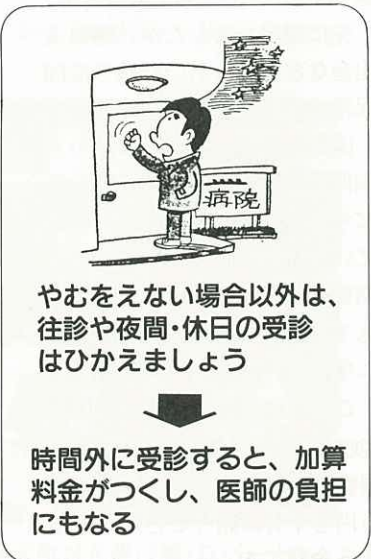 病院
やむをえない場合以外は、
往診や夜間・休日の受診
はひかえましょう
時間外に受診すると、加算
料金がつくし、医師の負担
にもなる